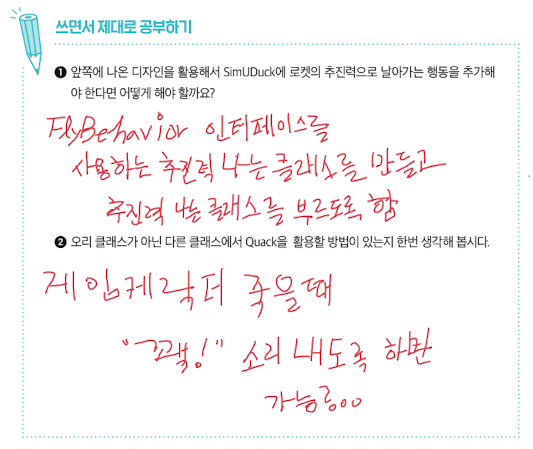 쓰면서 제대로 공부하기
❶ 앞쪽에 나온 디자인을 활용해서 SimUDuck에 로켓의 추진력으로 날아가는 행동을 추가해
야 한다면 어떻게 해야 할까요?
FlyBehavior 인터페이스를
사용하는 추진력 나는 클래스를 만들고
추진력 나는 클래스를 부르도록 함
❷ 오리 클래스가 아닌 다른 클래스에서 Quack을 활용할 방법이 있는지 한번 생각해 봅시다.
게임케릭터 죽을때
"꽥!" 소리 내도록 하면
가능